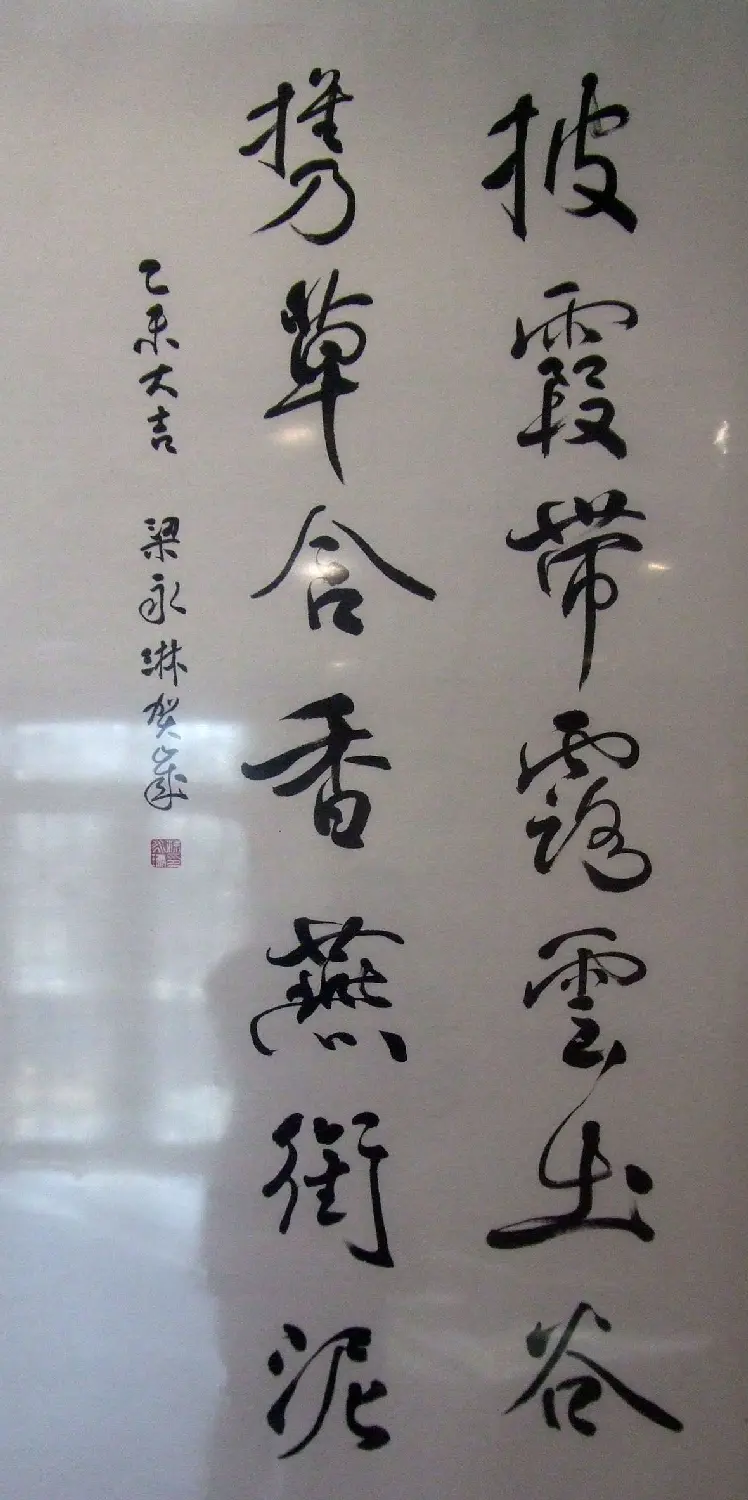 披霞带露雲出谷
携草含香燕衔泥
乙未大吉 梁永琳贺岁